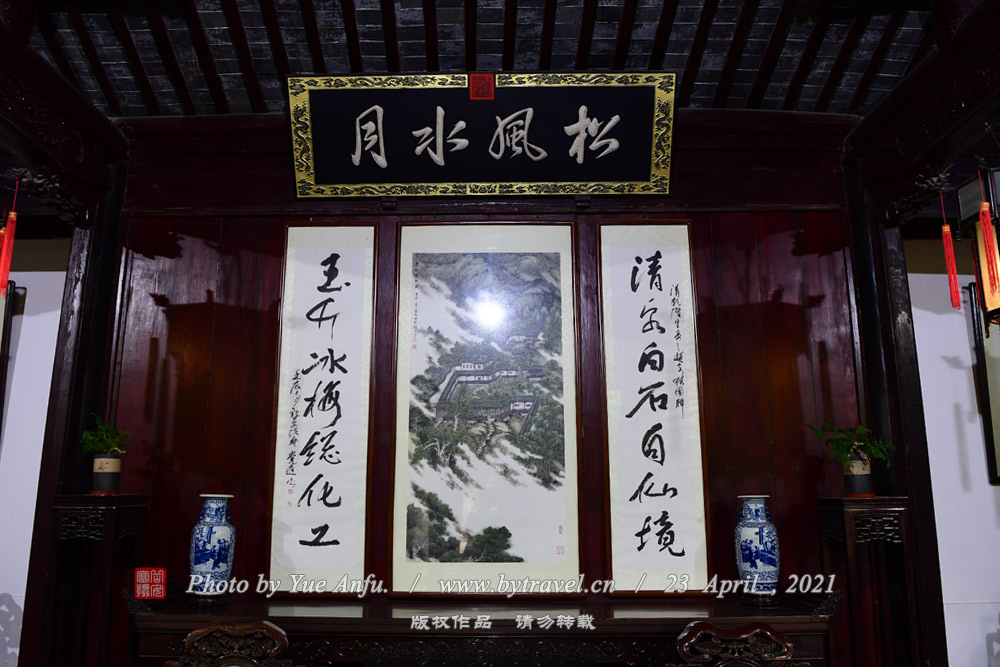 松風水月
清泉白石自仙境
玉竹冰梅總化工
Photo by Yue Anfu. / www.bytravel.cn / 23 April, 2021
版权作品 请勿转载